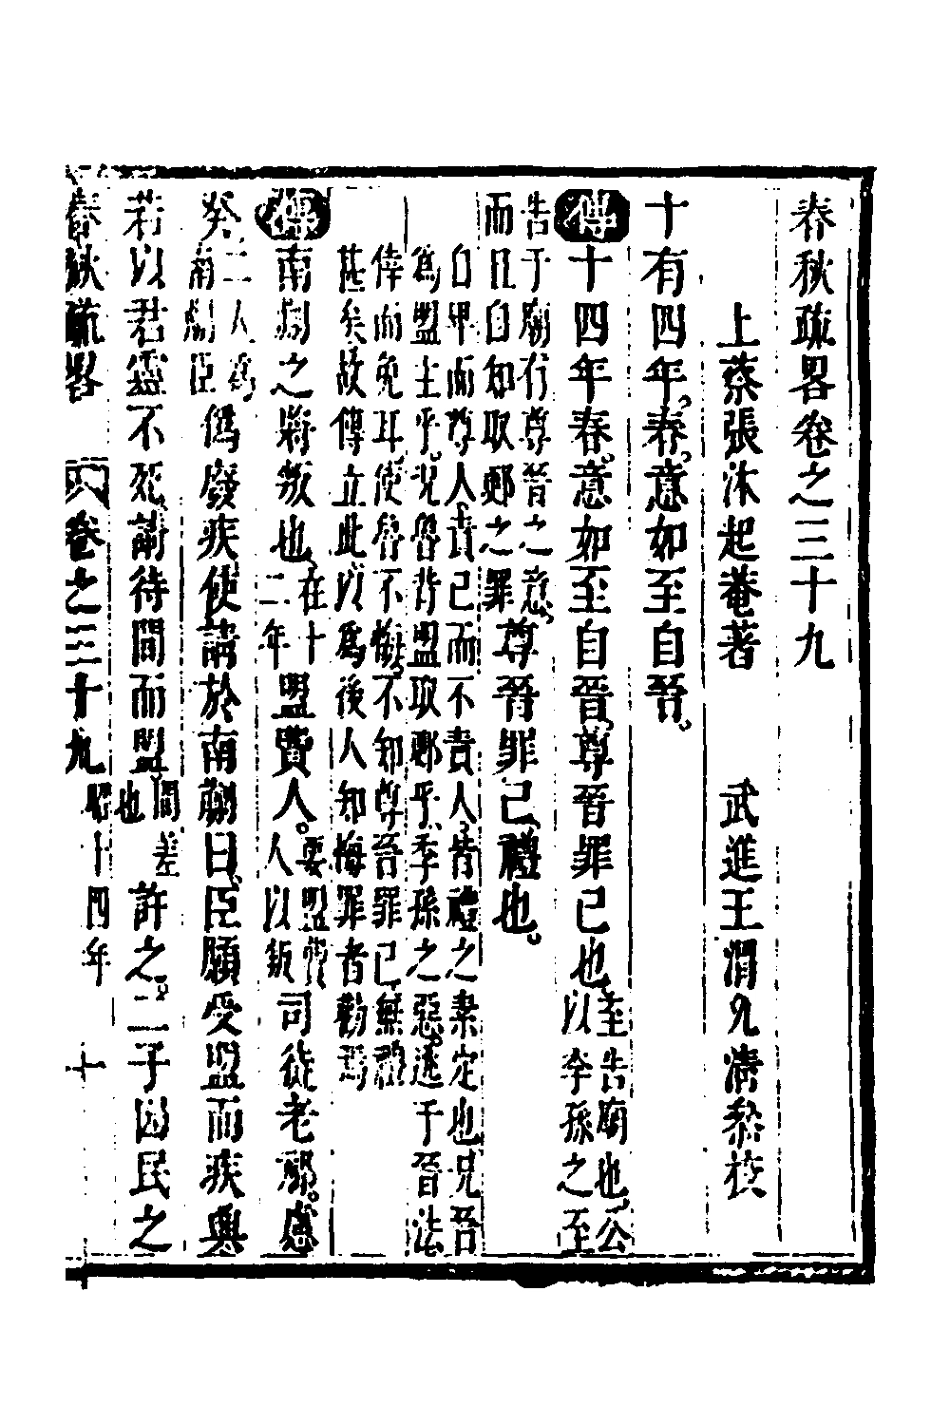 春秋疏畧卷之三十九
上蔡張沐起菴著　武進王渭允清黎校
十有四年。春。意如至自晉。
傳十四年春。意如至自晉。尊晉罪己也。至告廟也。公以季孫之至
告于廟行尊晉之意。而且自知取鄆之罪尊晉罪己。禮也。
自卑而尊人。責己而不責人。皆禮之素定也况晉
爲盟主乎。况魯背盟取鄆乎。季孫之惡。逃于晉法
倖而免耳。使魯不悔。不知尊晉罪己。無禮
甚矣。故傳立此以爲後人知悔罪者勸焉
傳南蒯之將叛也。在十二年盟費人。要盟費人以叛司徒老祁。慮
癸。二人爲南蒯臣僞廢疾使請於南蒯曰。臣願受盟而疾興
若以君靈不死。請待間而盟。間差也許之。二子因民之
春秋疏畧　卷之三十九　昭十四年　十